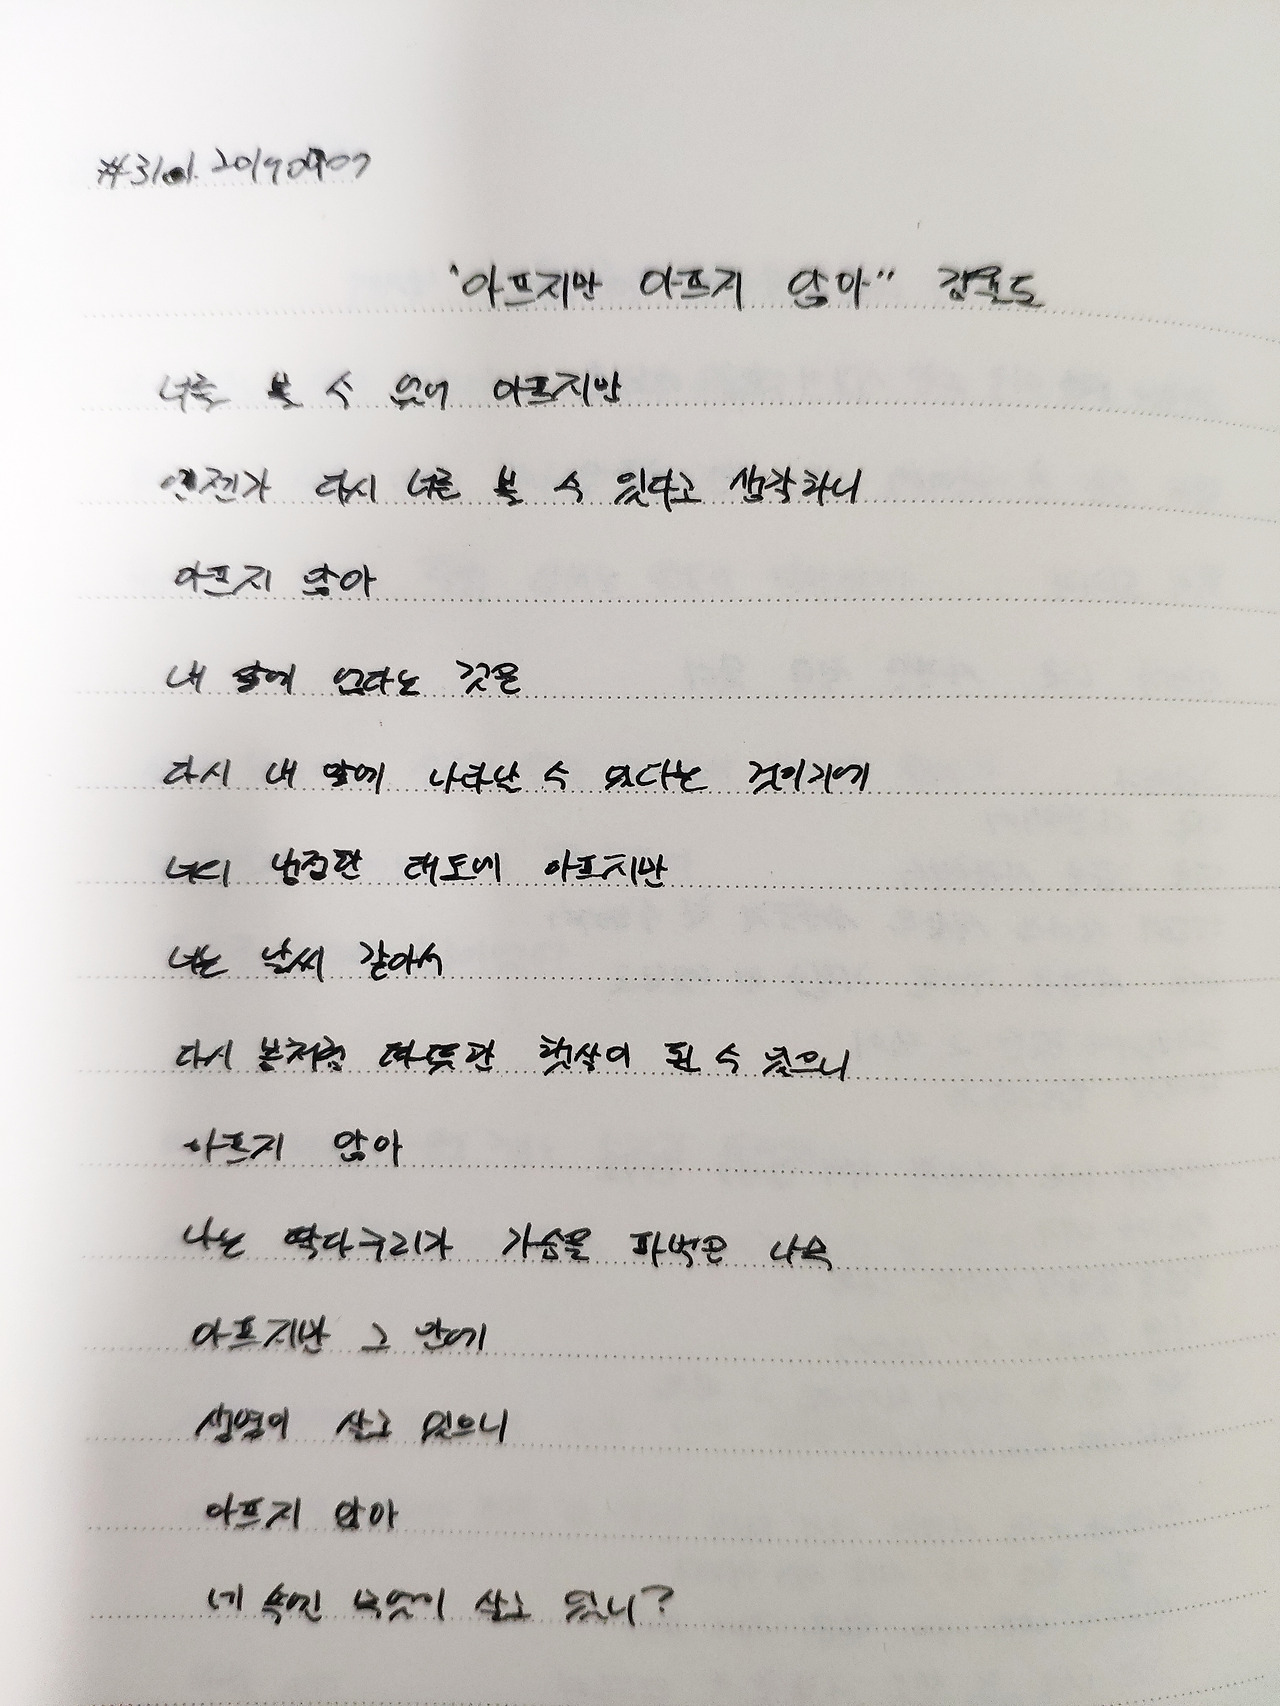 #3101. 20190907
"아프지만 아프지 않아"
너를 볼 수 없어 아프지만
언젠가 다시 너를 볼 수 있다고 생각하니
아프지 않아
내 앞에 없다는 것은
다시 내 앞에 나타날 수 있다는 것이기에
너의 냉정한 태도에 아프지만
너는 날씨 같아서
다시 봄처럼 따뜻한 햇살이 될 수 있으니
아프지 않아
나는 딱다구리가 가슴을 파먹은 나무
아프지만 그 안에
생명이 살고 있으니
아프지 않아
네 속엔 무엇이 살고 있니?